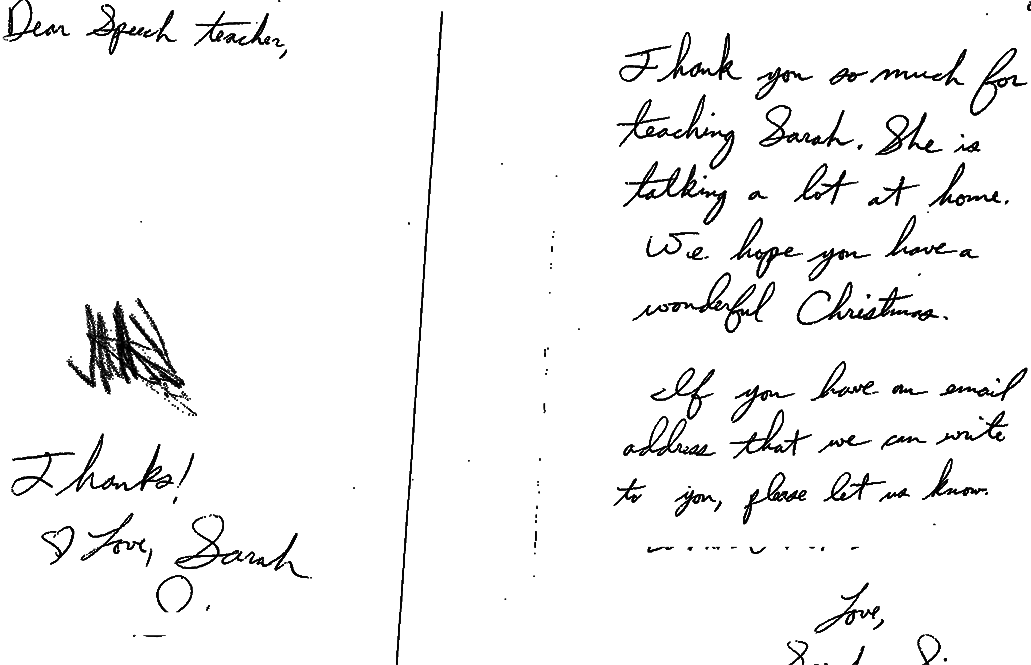 Dear Speech teacher,
Thanks!
♡ Love, Sarah
Thank you so much for
teaching Sarah. She is
talking a lot at home.
We hope you have a
wonderful Christmas.
If you have an email
address that we can write
to you, please let us know.
Love,